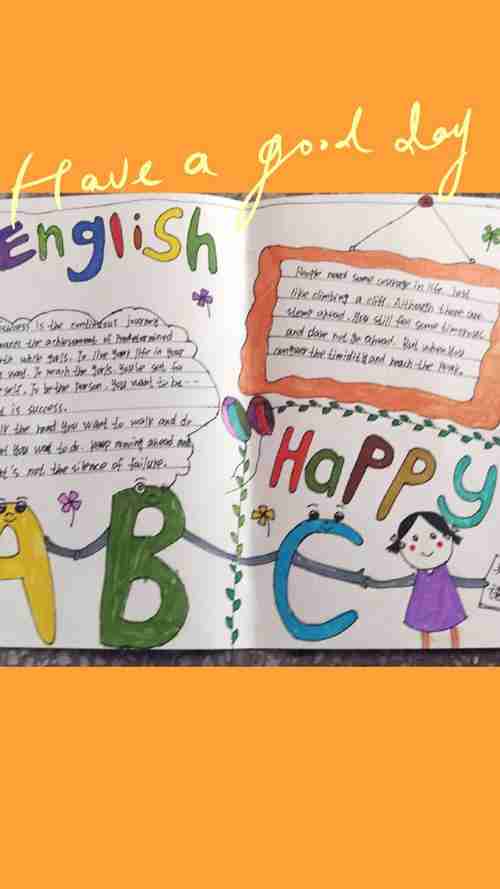 Have a good day
English
is the continuous journey
the achievement of predetermined
while goals. To live your life in your
way. To reach the goals. You've set for
self. To be the person. You want to be---
is success.
the road You want to walk and do
You want to do. keep moving ahead and
it's not the silence of failure.
People need some courage in life. Just
like climbing a cliff. Although there are
steep ahead. You still feel some timerous
and dave not go ahead. But when You
conquer the timidity and reach the peak.
Happy
A B C